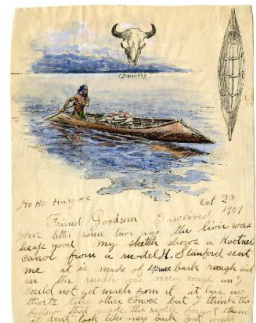 Ho Ho Hayae
Oct 23
1901
Friend Goodwin I received
your letter some time ago the liver was
heap good my sketch shows a Kootnei
canoe from a model H. Stanford sent
me it is made of spruce bark rough side
in the model was
could not get much from it it has no
thorts like other canoes but I think the
fellow that made the model forgot them
it don't look like very bark but